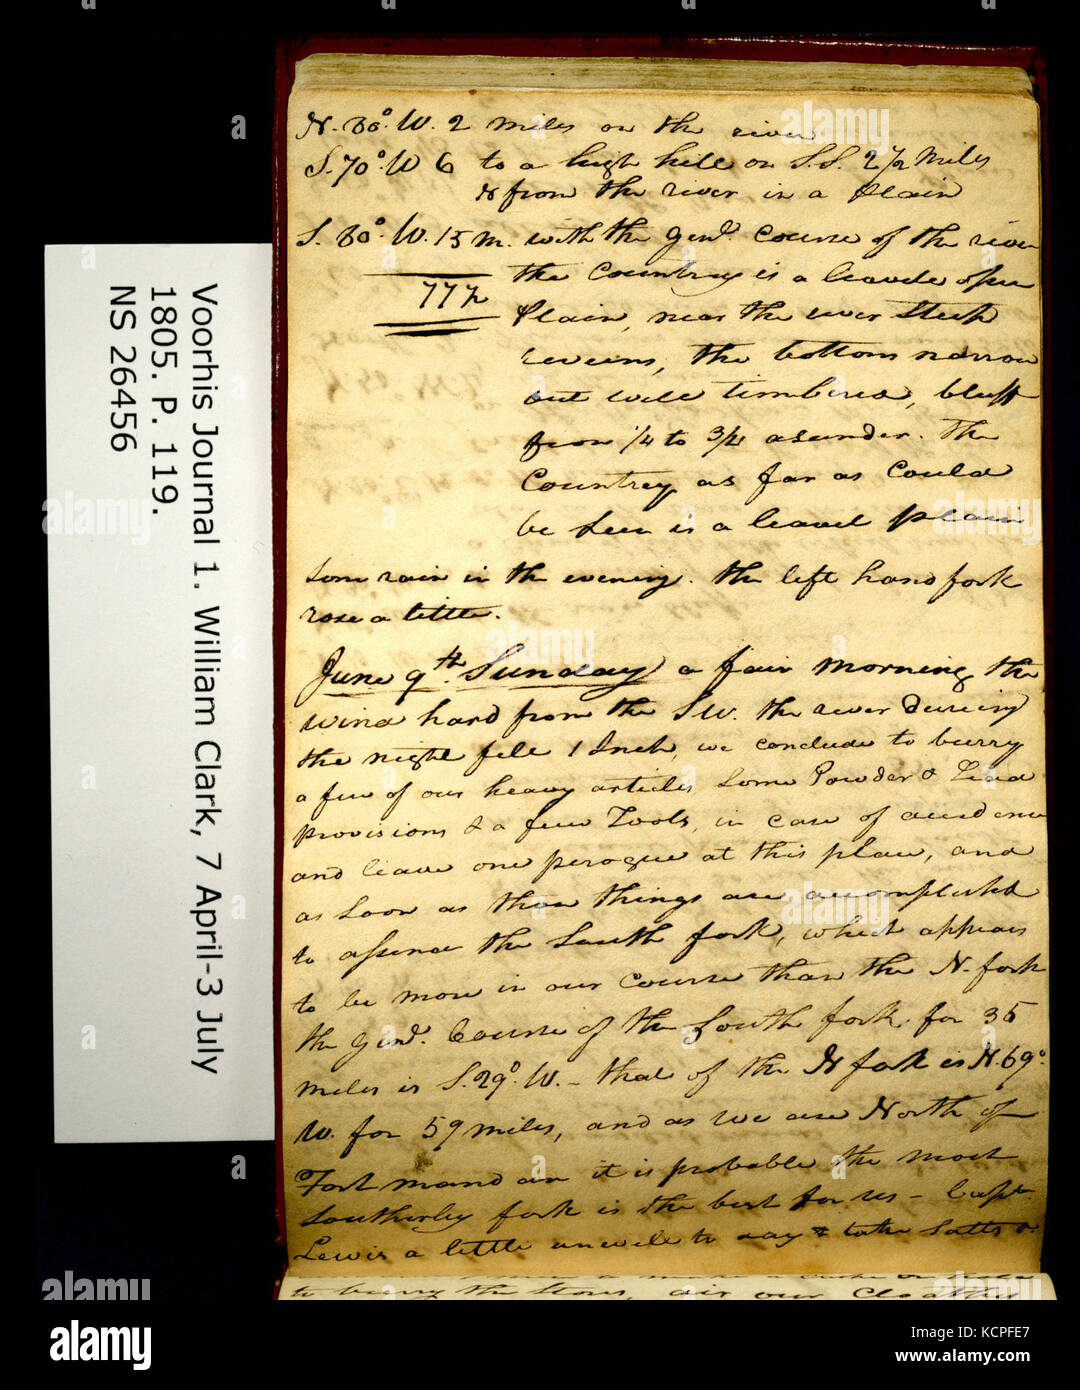 N. 30°. W. 2 miles on the river
S. 70°. W 6 to a high hill on S.S. 2 1/2 miles
from the river in a plain
S. 30°. W. 15 m. with the Genl. Course of the river
the Countrey is a leavele open
77 1/2
Plain, near the river Steep
reveins, the bottoms narrow
but well timbered, bluff
from 1/4 to 3/4 asunder. The
Countrey as far as Could
be Seen is a leavel plain
Some rain in the evening. the left hand fork
rose a little.
June 9th. Sunday a fair morning the
wind hard from the S W. the river dureing
the night fell 1 Inch, we conclude to burry
a fiew of our heavy articles Some Powder & Lead
provisions & a fiew Tools, in case of accidence
and leave one perogue at this place, and
as Soon as those things are accomplished
to assend the South fork, which appears
to be more in our course than the N. fork
the Genl. Course of the South fork for 35
miles is S. 29°. W. - that of the N fork is N. 69°.
W. for 59 miles, and as we are North of
Fort mandan it is probable the most
Southerly fork is the best for us - Capt.
Lewis a little unwell to day & take Salts &
to burry the Stores, air our Cloathes
Voorhis Journal 1. William Clark, 7 April-3 July
1805. P. 119.
NS 26456
alamy
alamy
alamy
alamy
alamy
alamy
alamy
alamy
alamy
a
a
a
a
a
a
a
a
alamy
Image ID: KCPFE7
www.alamy.com